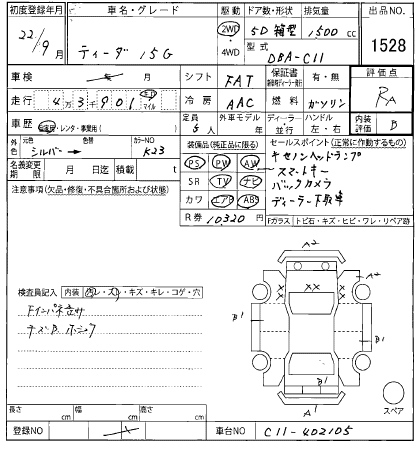 初度登録年月 車名・グレード 駆動 ドア数・形状 排気量 出品NO.
22/9月 ティーダ 15G 2WD 4WD 5D 箱型 1500cc 1528
型式 DBA-C11
車検 年 月 シフト FAT 保証書 有・無 評価点
走行 4万3千901 キロ マイル 冷房 AAC 燃料 ガソリン RA
車歴 自家用・レンタ・事業用( ) 定員 5人 外車モデル 年 ディーラー 並行 ハンドル 左・右 内装評価 B
色 元色 シルバー 色替 カラーNO K23
装備品(純正品に限る) セールスポイント(正常に作動するもの)
名義変更期限 月 日迄 積載 t
PS PW AW
SR TV ナビ
カワ エアB ABS
キセノンヘッドランプ
スマートキー
バックカメラ
ディーラー下取車
注意事項(欠品・修復・不具合箇所および状態)
R券 10320円 Fガラス トビ石・キズ・ヒビ・ワレ・リペア跡
A2
A2
検査員記入 内装 ・キズ・キレ・コゲ・穴
B1
B1
B1
A1
スペア
長さ cm 幅 cm 高さ cm
登録NO 車台NO C11-402105